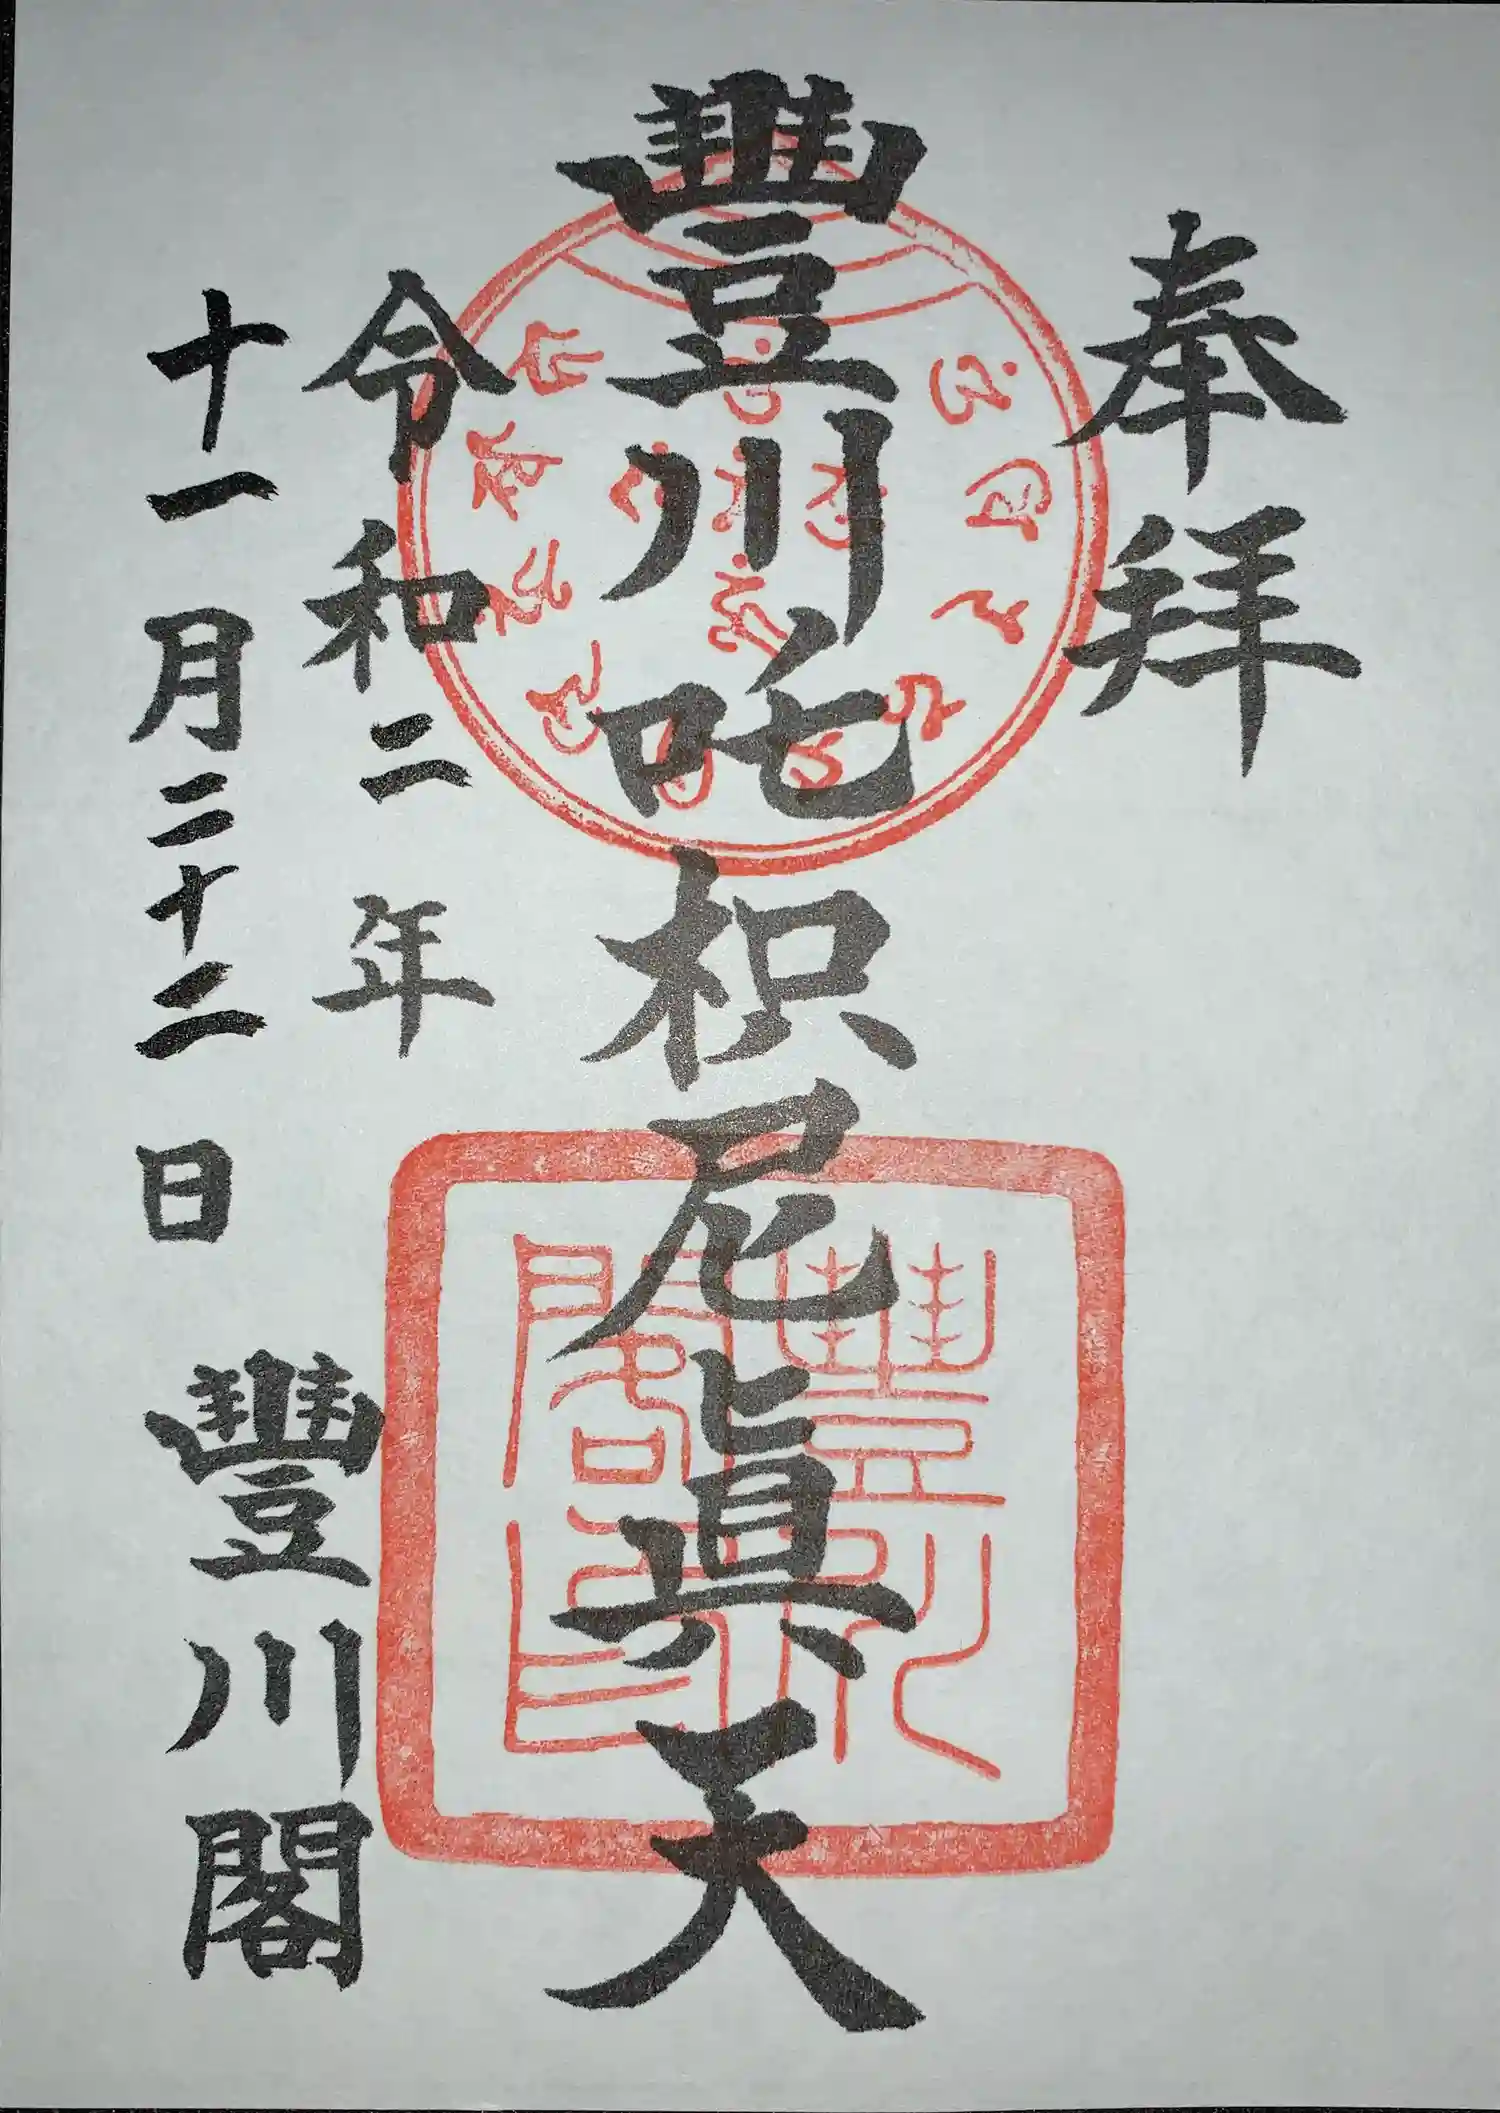 奉拝
豐川吒枳尼眞天
令和二年
十一月二十二日
豐川閣
豐川
閣印